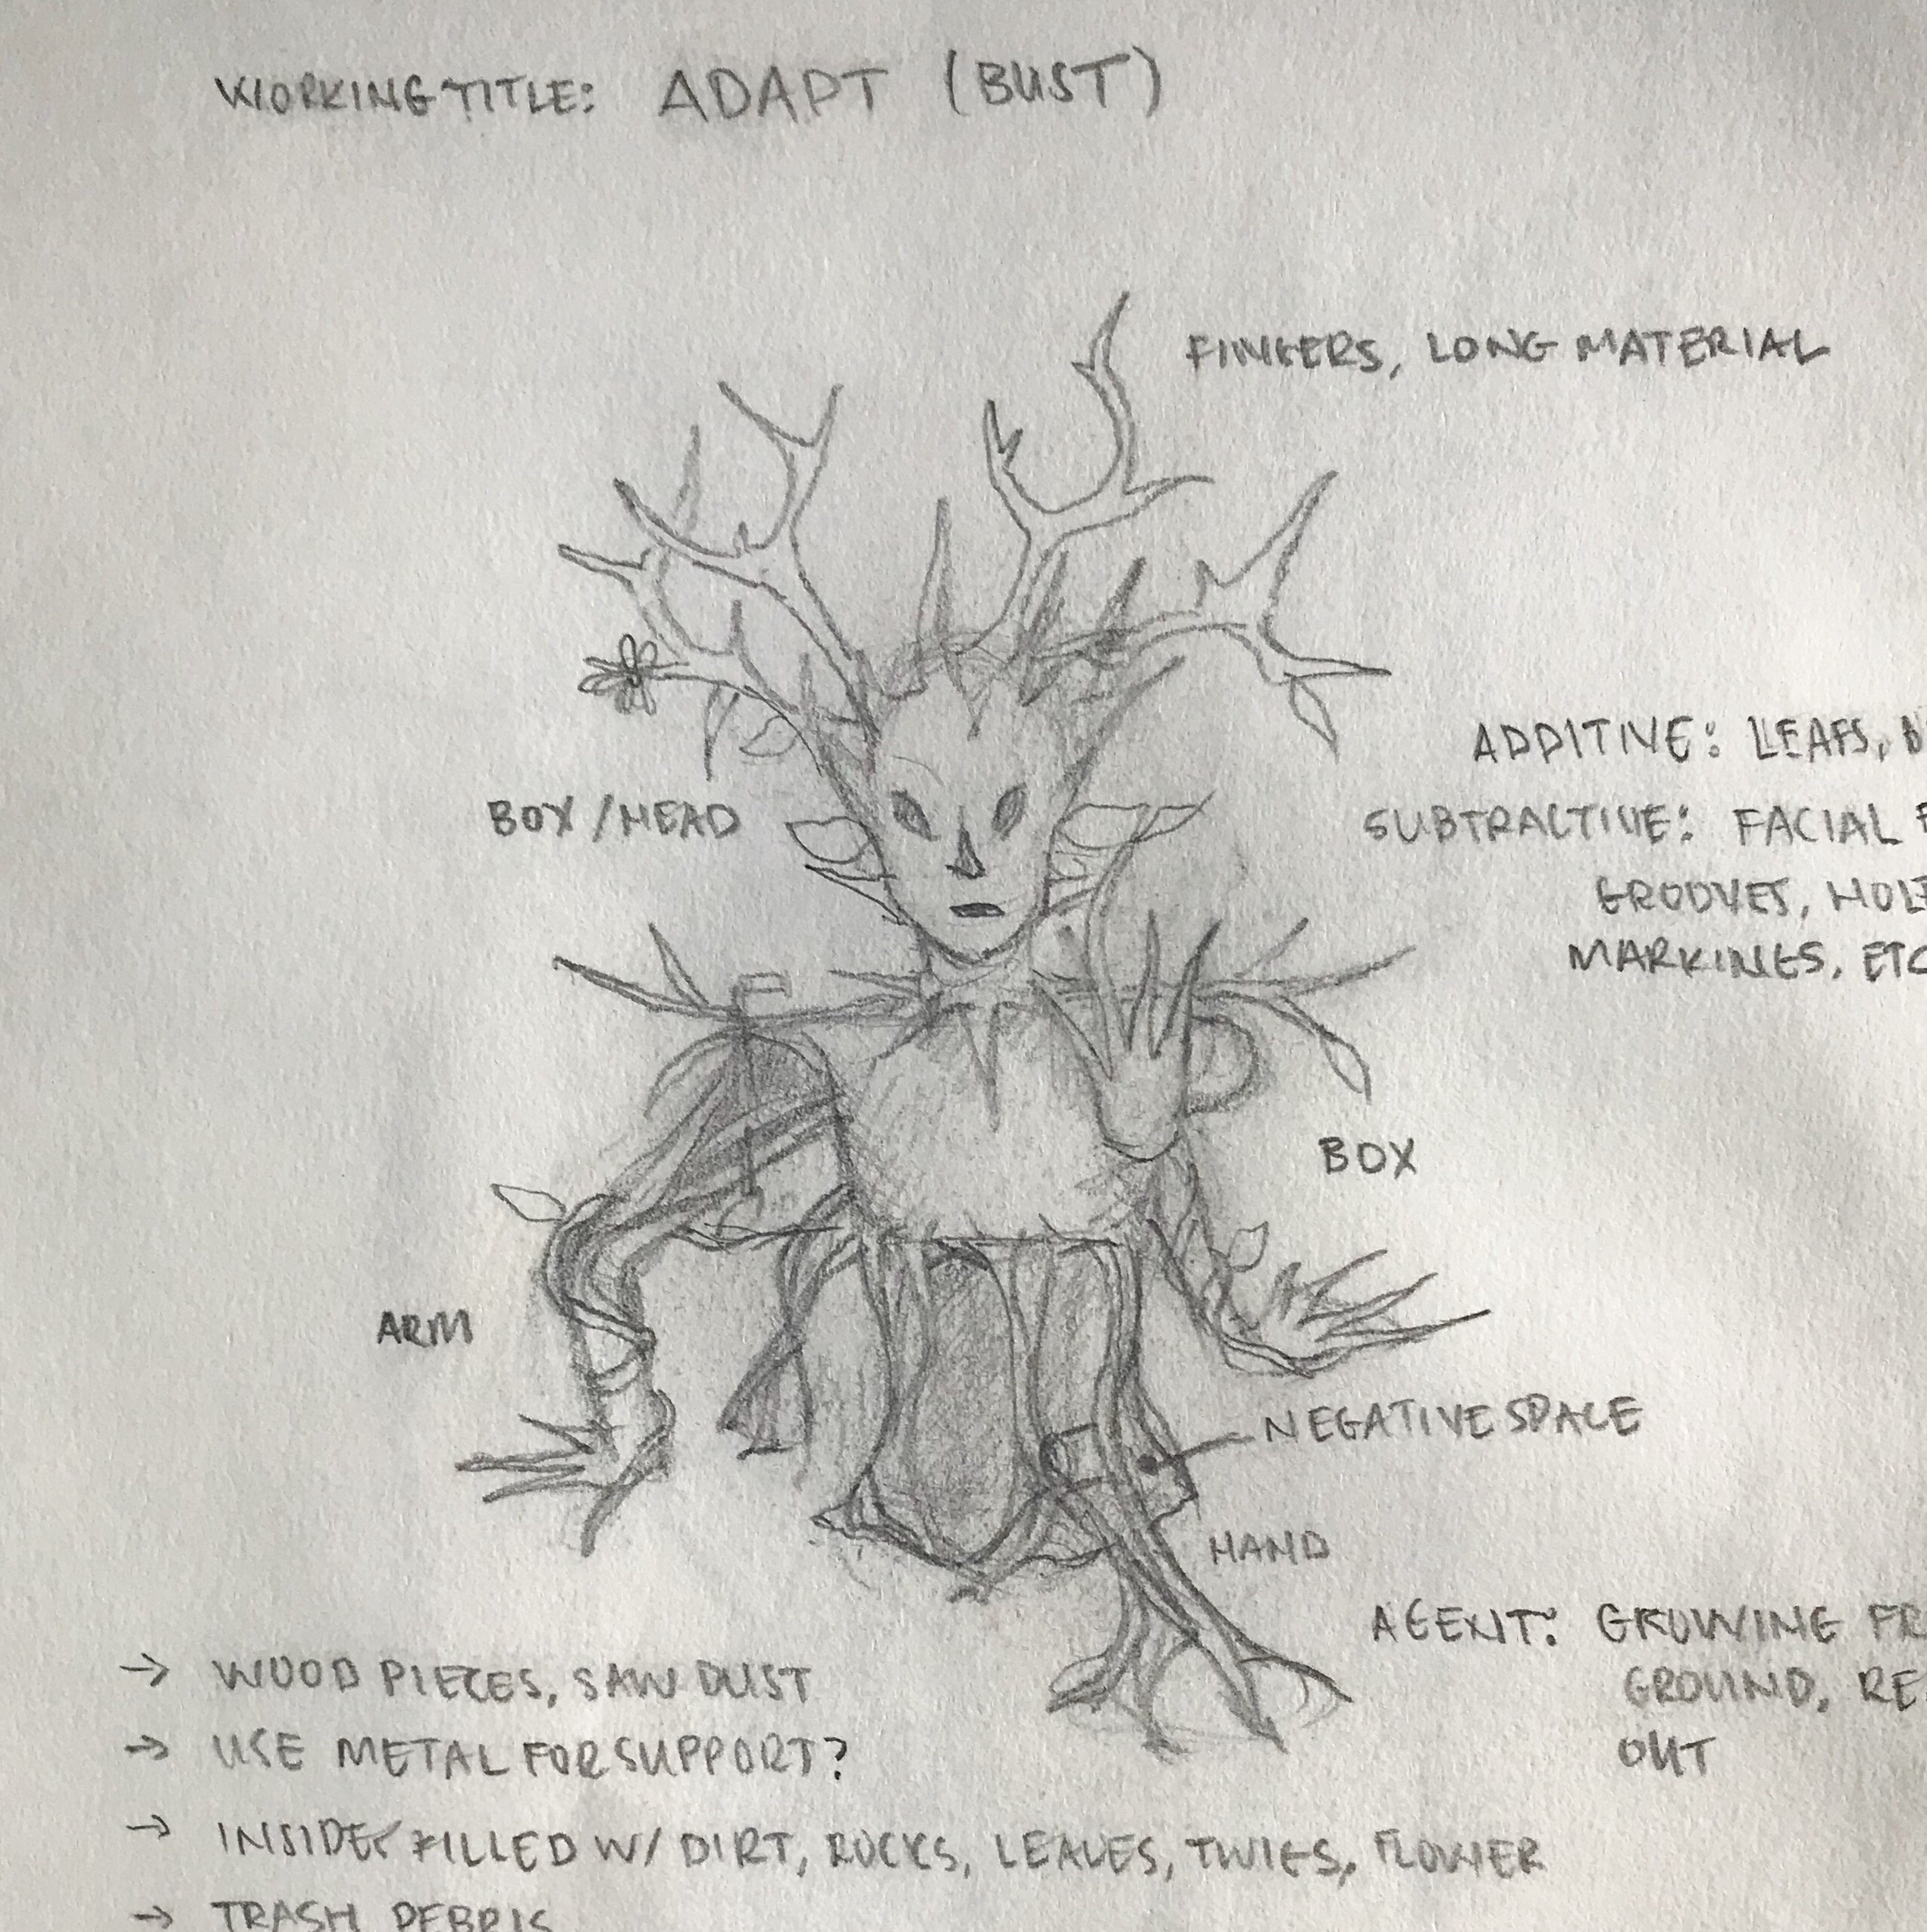 WORKING TITLE: ADAPT (BUST)
FINGERS, LONG MATERIAL
ADDITIVE: LEAFS,
BOX/HEAD
SUBTRACTIVE: FACIAL
GROOVES,
MARKINGS, ETC
BOX
ARM
NEGATIVE SPACE
HAND
AGENT: GROWING
GROUND,
OUT
→ WOOD PIECES, SAW DUST
→ USE METAL FOR SUPPORT?
→ INSIDE FILLED W/ DIRT, ROCKS, LEAVES, TWIGS, FLOWER
→ TRASH DEBRIS